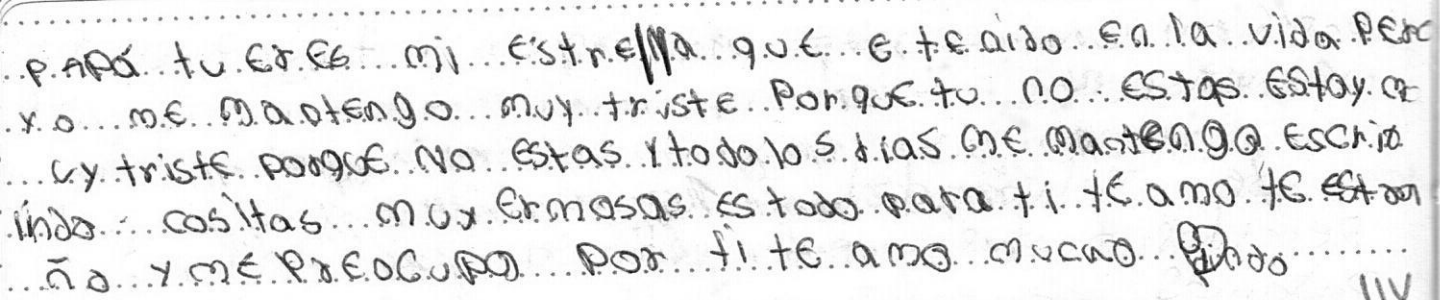 PAPÁ tu eres mi estrella que e teaido en la vida perc
yo me mantengo muy triste Porque tu no estas estoy m
uy triste porque No estas y todo los dias me mantengo Escrib
indo cositas muy ermosas es todo para ti te amo te estra
ño y me preocupo por ti te amo mucho lindo